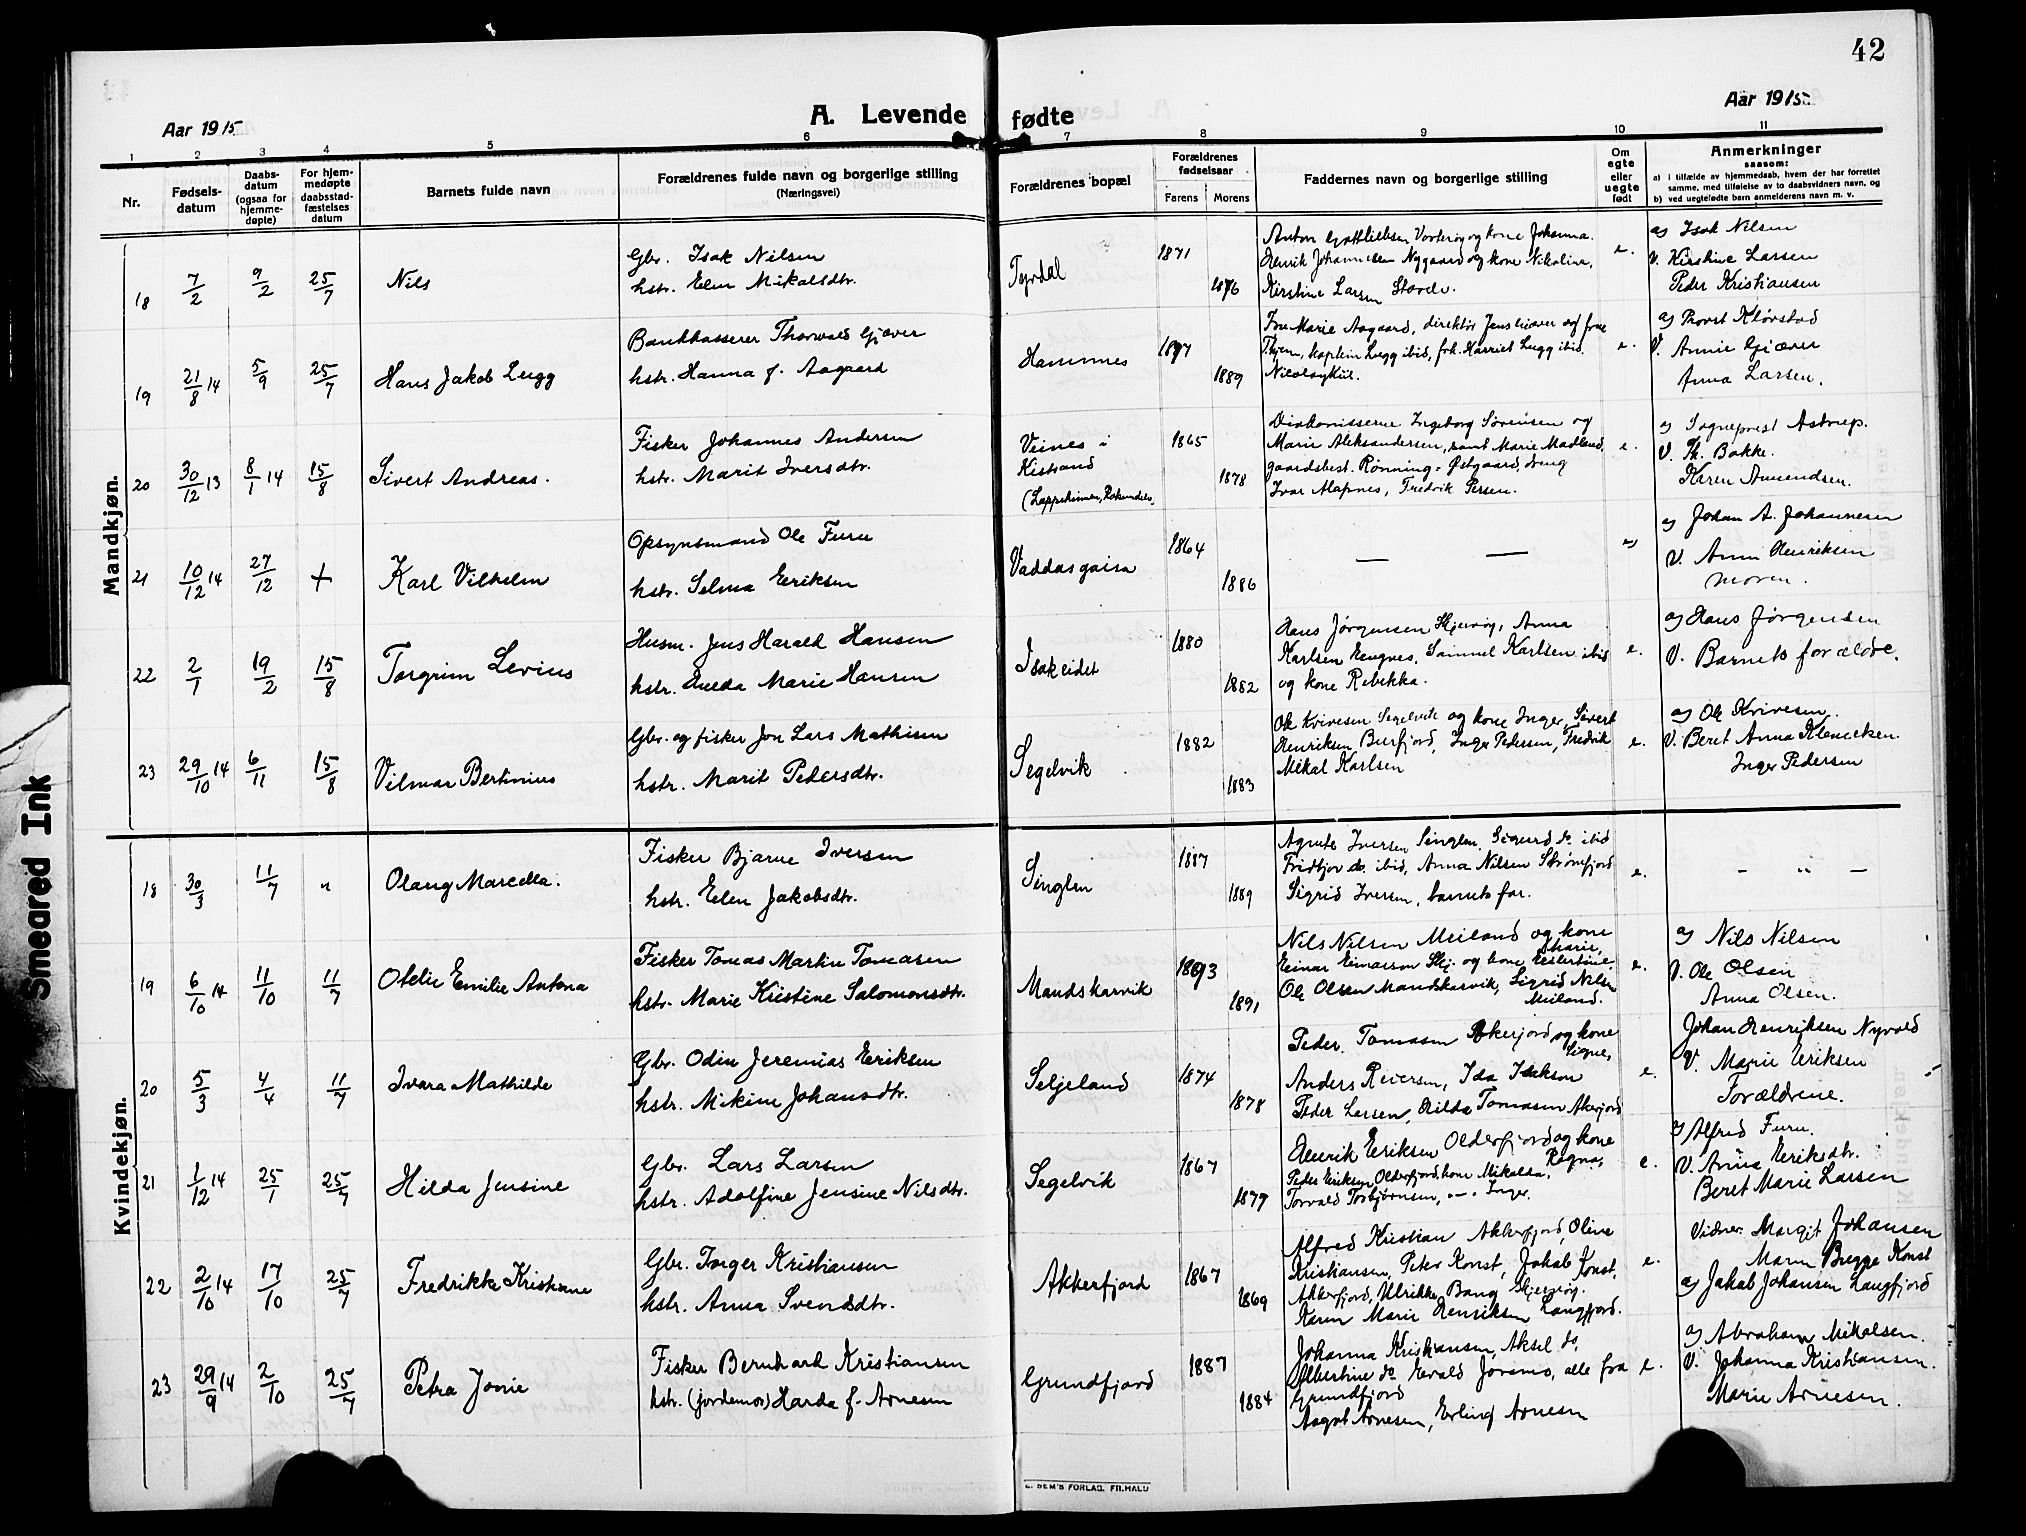 42
Aar 1915
A. Levende fødte
Aar 1915
1 2 3 4 5 6 7 8 9 10 11
Nr.
Fødsels-
datum
Daabs-
datum
(ogsaa for
hjemme-
døpte)
For hjem-
medøpte
daabsstad-
fæstelses
datum
Barnets fulde navn
Forældrenes fulde navn og borgerlige stilling
(Næringsvei)
Forældrenes bopæl
Forældrenes
fødselsaar
Farens Morens
Faddernes navn og borgerlige stilling
Om
egte
eller
uegte
født
Anmerkninger
saasom:
a) i tilfælde av hjemmedaab, hvem der har forrettet
samme, med tilføielse av to daabsvidners navn, og
b) ved uegtefødte barn anmelderens navn m. v.
Mandkjøn.
18 7/2 9/2 25/7 Nils
Gbr. Isak Nilsen
hstr. Elen Mikalsdtr.
1871
1876
Anton Vorterøy og kone Johanna.
Henrik Johannesen Nygaard og kone Nikoline,
Kirstine Larsen
e.
a) Isak Nilsen
V. Kirstine Larsen
Peder Kristiansen
19 21/8 14 5/9 25/7 Hans Jakob Lugg
Bankkasserer Thorvald Gjæver
hstr. Hanna f. Aagaard
Hamnnes
1889
Fru Marie Aagaard, direktør Jens Giæver og frue
kaptein Lugg ibid, frk. Harriet Lugg ibid.
e.
a) Provst Kjørstad
V. Annie Giæver
Anna Larsen.
20 30/12 13 8/1 14 15/8 Sivert Andreas.
Fisker Johannes Andersen
hstr. Marit Iversdtr.
Veines i
Kistrand
1865
1878
Diakonisserne Ingeborg Sørensen og
Marie Aleksandersen, samt Marie Madland,
gaardsbest. Rønning - Østgaard, dreng
Ivar Mapnes, Fredrik Persen.
e.
a) Sogneprest Astrup.
V. Th. Bakke.
Karen Amundsen.
21 10/12 14 27/12 + Karl Vilhelm
Opsynsmand Ole Furu
hstr. Selma Eriksen
Vaddasgaisa
1864
1886
— —
a) Johan A. Johannesen
V. Anna Henriksen
moren.
22 2/1 19/2 15/8 Torgrim Levius
Husm. Jens Harald Hansen
hstr. Hulda Marie Hansen
Isakeidet
1880
1882
Hans Jørgensen Skjervøy, Anna
Karlsen Engnes, Samuel Karlsen ibid
og kone Rebekka.
e.
a) Hans Jørgensen
V. Barnets forældre.
23 29/10 14 6/11 15/8 Vilmar Bertinius
Gbr. og fisker Jon Lars Mathisen
hstr. Marit Pedersdtr.
Segelvik
1882
1883
Ole Kvivesen Segelvik og kone Inger, Sivert
Henriksen Burfjord, Inger Pedersen, Fredrik
Mikal Karlsen
e.
a) Ole Kvivesen.
V. Beret Anna
Inger Pedersen
Kvindekjøn.
18 30/3 11/7 " Olaug Marcella.
Fisker Bjarne Iversen
hstr. Elen Jakobsdtr.
Singlen
1887
1889
Agnete Iversen Singlen, Sigurd do ibid
Fridtjov do. ibid, Anna Nilsen Strømfjord
Sigrid Iversen, barnets far.
e.
- " -
19 6/10 14 11/10 11/7 Otelie Emilie Antona
Fisker Tomas Martin Tomasen
hstr. Marie Kristine Salomonsdtr.
Mandskarvik
1893
1891
Nils Nilsen Meiland og kone
Marie,
Einar Einarsen Skj. og kone
Ole Olsen Mandskarvik, Sigrid Nilsen
Meiland.
e.
a) Nils Nilsen
V. Ole Olsen
Anna Olsen.
20 5/3 4/4 11/7 Ivara Mathilde
Gbr. Odin Jeremias Eriksen
hstr. Mikine Johansdtr.
Seljeland
1874
1878
Peder Tomasen Akerjord og kone
Signe,
Anders Reiersen, Ida Isaksen
Peder Larsen, Hilda Tomasen Akerjord
e.
Johan Henriksen Nyvold
V. Marie Eriksen
Forældrene.
21 1/12 14 25/1 25/7 Hilda Jensine
Gbr. Lars Larsen
hstr. Adolfine Jensine Nilsdtr.
Segelvik
1867
1877
Henrik Eriksen Olderfjord og kone
Ragna,
Peder Eriksen Olderfjord, kone Mikalsa,
Torvald Torbjørnsen, - " - Inger.
e.
a) Alfred Furu.
V. Anna Eriksdtr.
Beret Marie Larsen
22 2/10 14 17/10 25/7 Fredrikke Kristiane
Gbr. Torger Kristiansen
hstr. Anna Svendsdtr.
Akkerfjord
1867
1869
Alfred Kristian Akkerfjord, Oline
Kristiansen, Peter Konst, Jakob Konst,
Akkerfjord, Ulrikke Bang Skjervøy.
Karen Marie Henriksen Langfjord.
e.
Vidner: Margit Johansen
Maren Bugge Konst
a) Jakob Johansen Langfjord
23 29/9 14 2/10 25/7 Petra Jonie
Fisker Bernhard Kristiansen
hstr. (jordemor) Harda f. Arnesen
Grundfjord
1887
1884
Johanna Kristiansen, Aksel do,
Albertine do Evald Joramo, alle fra
Grundfjord
Aagot Arnesen, Erling Arnesen
e.
a) Abraham Mikalsen.
V. Johanna Kristiansen.
Marie Arnesen.
Smeared Ink
SEM'S FORLAG, FR.HALD